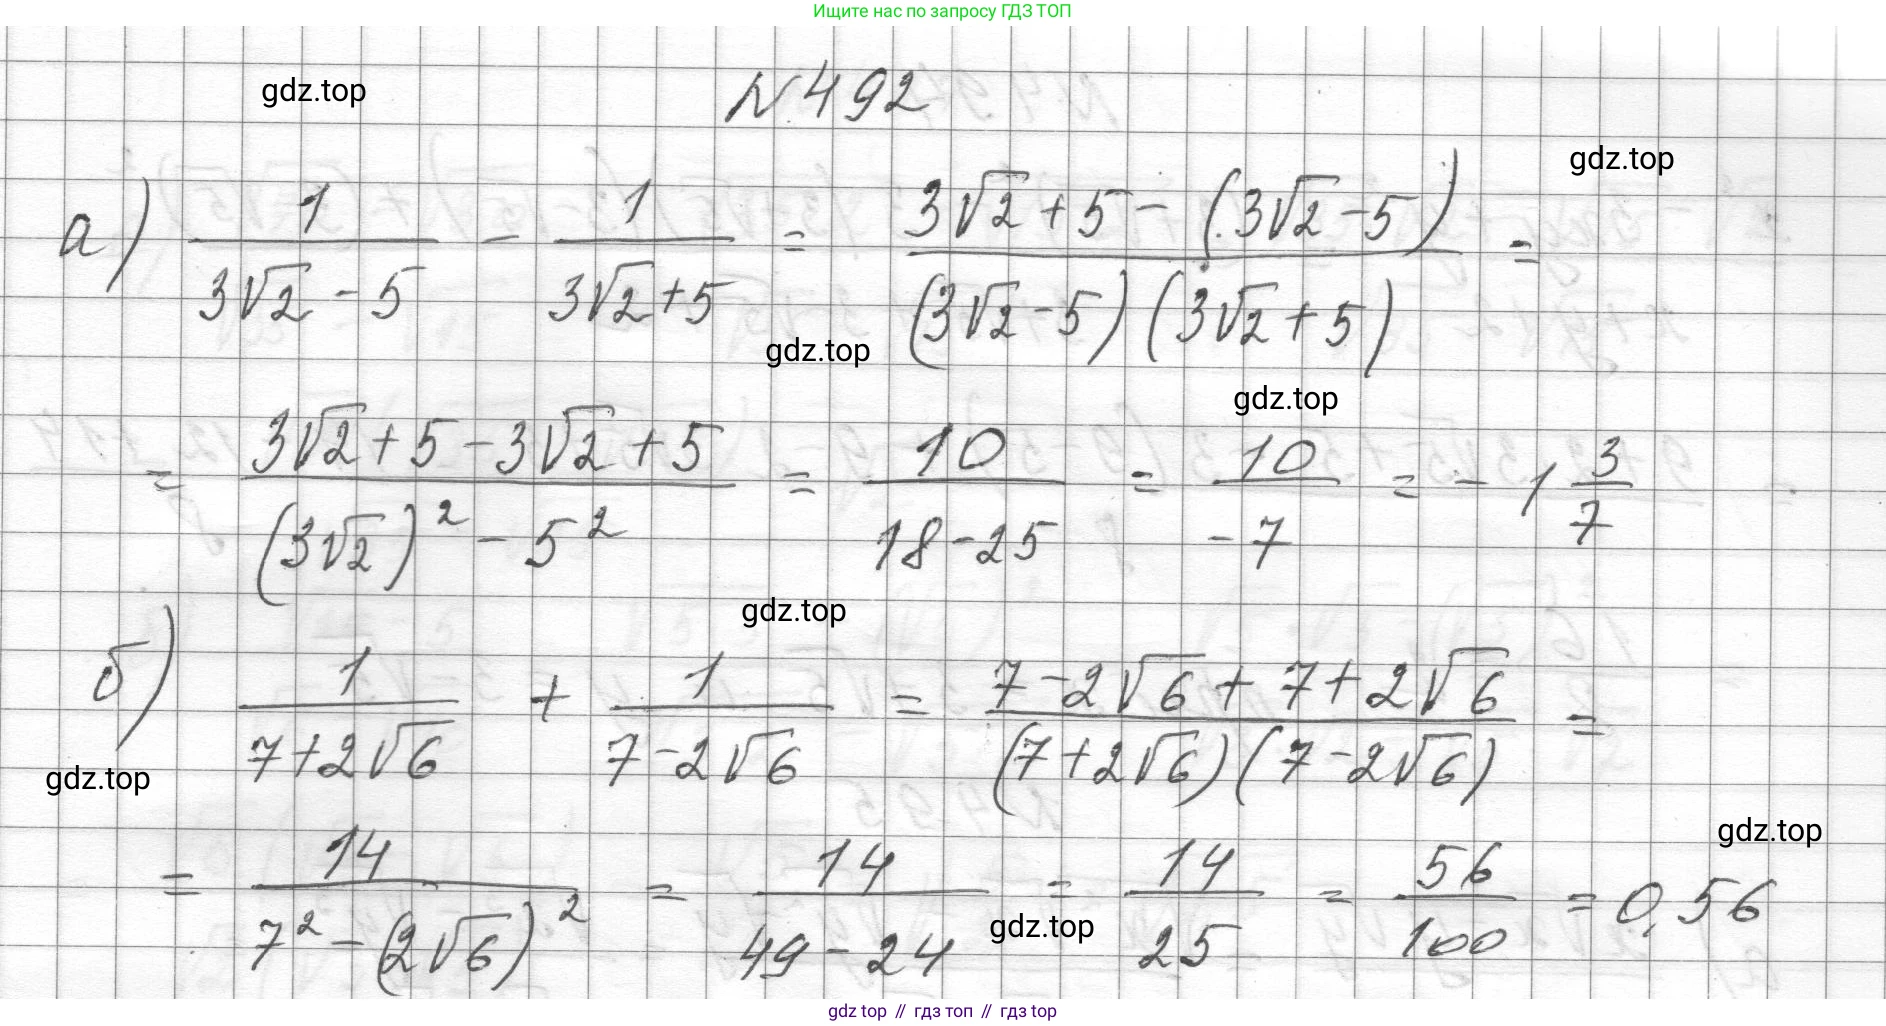 Ищите нас по запросу ГДЗ ТОП
gdz.top
№ 492
gdz.top
а) 1/(3√2 - 5) - 1/(3√2 + 5) = (3√2 + 5 - (3√2 - 5))/((3√2 - 5)(3√2 + 5)) =
gdz.top
gdz.top
= (3√2 + 5 - 3√2 + 5)/((3√2)² - 5²) = 10/(18 - 25) = 10/(-7) = - 1 3/7
gdz.top
б) 1/(7 + 2√6) + 1/(7 - 2√6) = (7 - 2√6 + 7 + 2√6)/((7 + 2√6)(7 - 2√6)) =
gdz.top
gdz.top
= 14/(7² - (2√6)²) = 14/(49 - 24) = 14/25 = 56/100 = 0,56
gdz.top
gdz top // гдз топ // gdz top